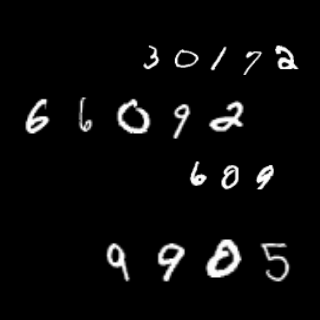 30172
66092
609
9905